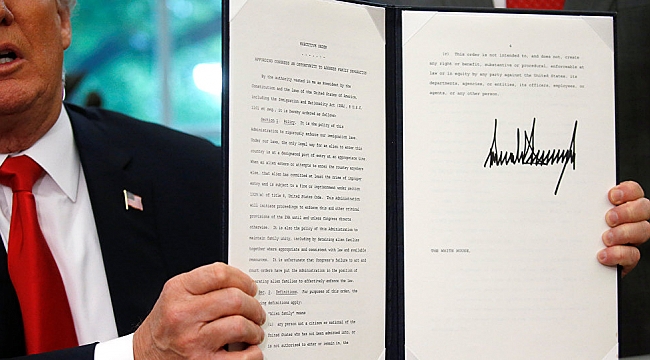 EXECUTIVE ORDER
AFFORDING CONGRESS AN OPPORTUNITY TO ADDRESS FAMILY SEPARATION
By the authority vested in me as President by the
Constitution and the laws of the United States of America,
including the Immigration and Nationality Act (INA), 8 U.S.C.
1101 et seq., it is hereby ordered as follows:
Section 1. Policy. It is the policy of this
Administration to rigorously enforce our immigration laws.
Under our laws, the only legal way for an alien to enter this
country is at a designated port of entry at an appropriate time.
When an alien enters or attempts to enter the country anywhere
else, that alien has committed at least the crime of improper
entry and is subject to a fine or imprisonment under section
of title 8, United States Code. This Administration
will initiate proceedings to enforce this and other criminal
provisions of the INA until and unless Congress directs
otherwise. It is also the policy of this Administration to
maintain family unity, including by detaining alien families
together where appropriate and consistent with law and available
resources. It is unfortunate that Congress's failure to act and
court orders have put the Administration in the position of
separating alien families to effectively enforce the law.
Sec. 2. Definitions. For purposes of this order, the
definitions apply:
"Alien family" means
any person not a citizen or national of the
United States who has not been admitted into, or
is not authorized to enter or remain in, the
4
(c) This order is not intended to, and does not, create
any right or benefit, substantive or procedural, enforceable at
law or in equity by any party against the United States, its
departments, agencies, or entities, its officers, employees, or
agents, or any other person.
THE WHITE HOUSE,